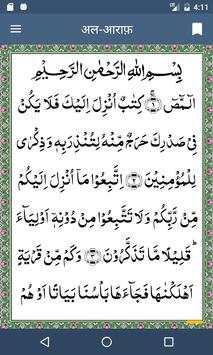 4:11
अल-आराफ़
بِسْمِ اللهِ الرَّحْمٰنِ الرَّحِيْمِ
الٓمّٓصٓ ۚ﴿۱﴾ كِتٰبٌ اُنْزِلَ اِلَيْكَ فَلَا يَكُنْ
فِيْ صَدْرِكَ حَرَجٌ مِّنْهُ لِتُنْذِرَ بِهٖ وَذِكْرٰى
لِلْمُؤْمِنِيْنَ ﴿۲﴾ اِتَّبِعُوْا مَآ اُنْزِلَ اِلَيْكُمْ
مِّنْ رَّبِّكُمْ وَلَا تَتَّبِعُوْا مِنْ دُوْنِهٖٓ اَوْلِيَآءَ ؕ
قَلِيْلًا مَّا تَذَكَّرُوْنَ ﴿۳﴾ وَكَمْ مِّنْ قَرْيَةٍ
اَهْلَكْنٰهَا فَجَآءَهَا بَاْسُنَا بَيَاتًا اَوْ هُمْ